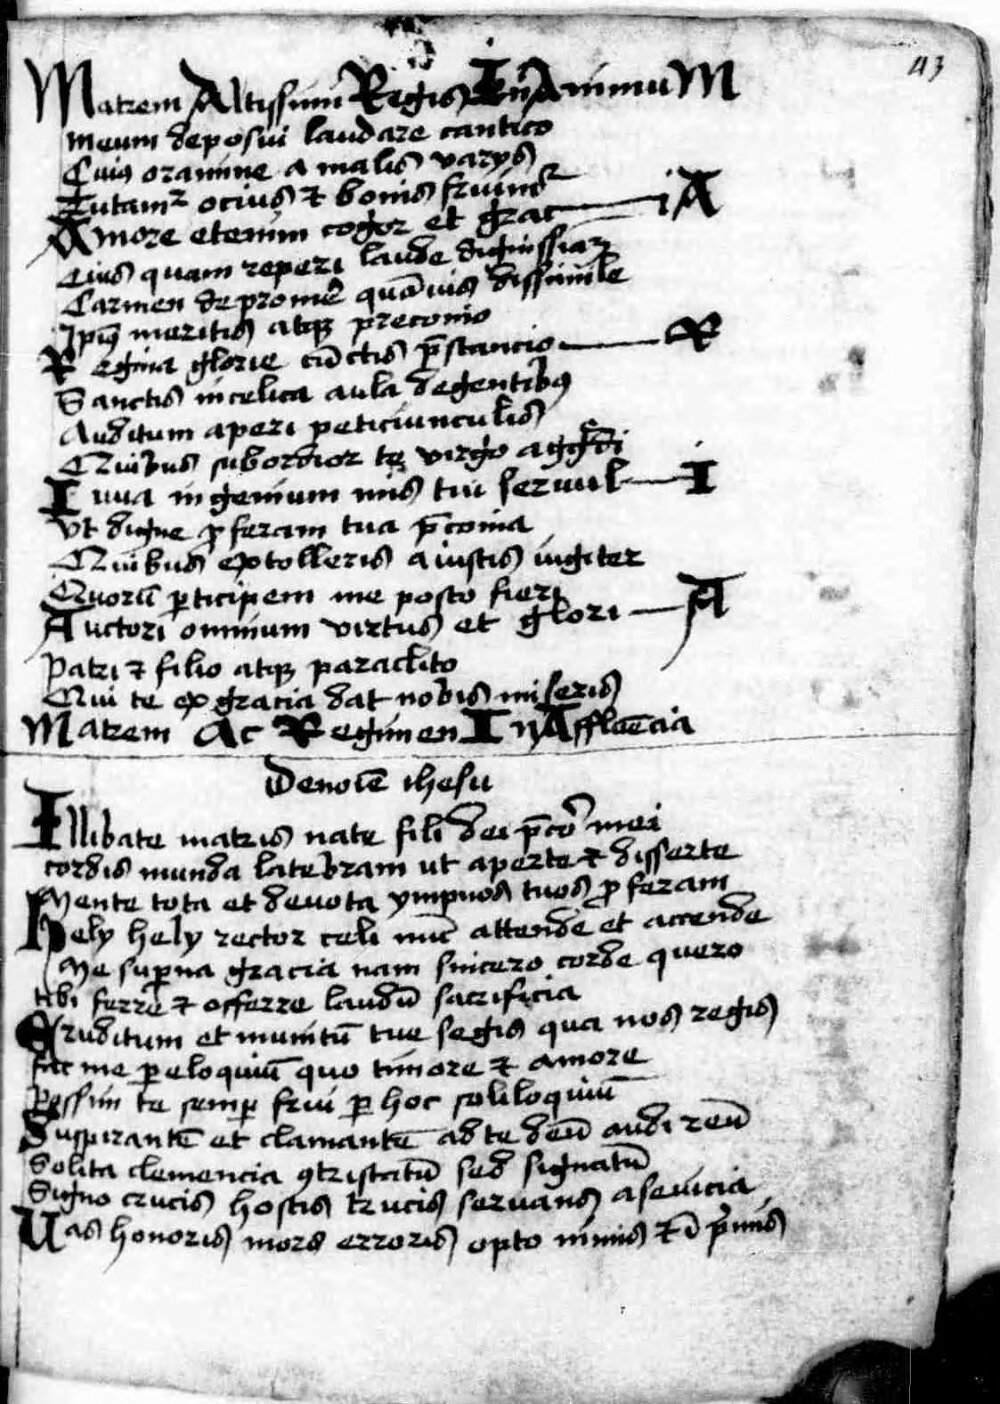 43
Matrem Altissimi Regis In Animu M
meum deposui laudare cantico
Cuiꝰ oramine a malis varijs
Tutamr ocius ⁊ bonis fruimr
Amore etenim cogor et grac—iA
Eius quam reperi laude dignissiam
Carmen depromē quāuis dissimile
Ipiꝰ meritis atqꝫ preconio
Regina glorie cūctis p̄stancio—R
Sanctis in celica aula degentibꝰ
Auditum aperi peticiunculis
Quibus subordior te virgo aggͤdi
Iuua ingenium mis tui seruul—I
Vt digne ꝓferam tua p̄conia
Quibus extolleris a iustis iugiter
Quorū ꝑticipem me posco fieri
Auctori omnium virtus et glori—A
Patri ⁊ filio atqꝫ paraclito
Qui te ex gracia dat nobis miseris
Matrem Ac Regimen In Affluēcia
De noīe ihesu
Illibate matris nate fili dei p̄cor mei
cordis munda latebram ut aperte ⁊ disserte
Mente tota et deuota ympnos tuos ꝓferam
Hely hely rector celi nūc attende et accende
Me suꝑna gracia nam sincero corde quero
tibi ferre ⁊ offerre laudū sacrificia
Eruditum et munitū tue legis qua nos regis
fac me ꝑ eloquiū quo timore ⁊ amore
Possim te semꝑ frui ꝑ hoc soliloquiū
Suspirantē et clamantē ad te deū audi reū
Solita clemencia ꝯtristatū sed signatū
Signo crucis hostis trucis seruans a seuicia
Vas honoris mors erroris opto nimis ⁊ ī p̄mis